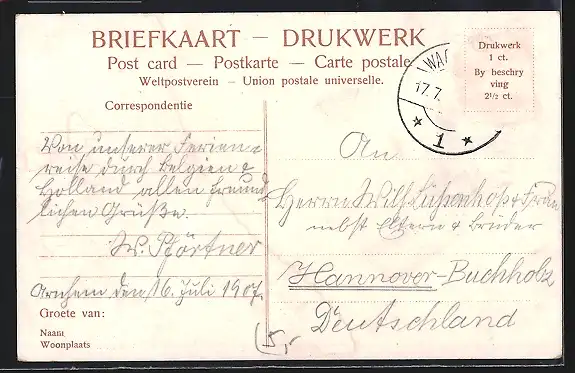 BRIEFKAART — DRUKWERK
Post card — Postkarte — Carte postale
Weltpostverein — Union postale universelle.
Drukwerk
1 ct.
By beschry
ving
2½ ct.
WA
17.7.
* 1 *
Correspondentie
Von unserer Ferien=
reise durch Belgien &
Holland allen freund
lichen Grüße.
W. Pförtner
Arnhem den 16. Juli 1907.
Groete van:
Naam
Woonplaats
An
Herrn Wilh. & Frau
nebst Eltern & Brüder
Hannover-Buchholz
Deutschland
5,-